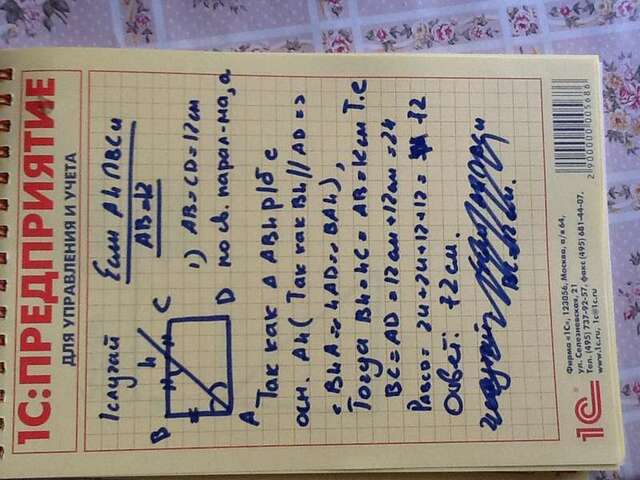 1С:ПРЕДПРИЯТИЕ
ДЛЯ УПРАВЛЕНИЯ И УЧЕТА
1случай Если Ah∩BC и
AB=12
B h C
A D
1) AB=CD=12см
по св. парал-ма, а
Так как Δ ABh р/б с
осн. Ah (Так как Bh//AD =>
<BhA=<hAD=<BAh),
Тогда Bh=hC=AB=12см Т.е
BC=AD=12см+12см=24
Pabcd=24+24+12+12= 72
Ответ: 72см.
1С
®
Фирма «1С», 123056, Москва, а/я 64,
ул. Селезневская, 21
Тел. (495) 737-92-57, факс (495) 681-44-07,
www.1c.ru, 1c@1c.ru
2 900000 005686